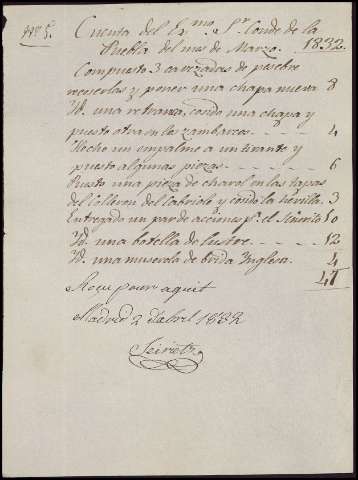 Nº 5.
Cuenta del Exmo. Sr. Conde de la
Puebla del mes de Marzo. 1832.
Compuesto 3 cavezadas de pesebre
recoserlas y poner una chapa nueva 8
Yd. una retranca, cosido una chapa y
puesto otra en los zambarcos - - - - 4
Hecho un empalme a un tirante y
puesto algunas piezas - - - - 6
Puesto una pieza de charol en las tapas
del colleron del cabriole y cosido la hevilla 3
Entregado un par de acciones pa. el Señorito 10
Yd. una botella de lustre - - - - 12
Yd. una muserola de brida Ynglesa. 4
47
Reçu pour aquit
Madrid 2 d'abril 1832